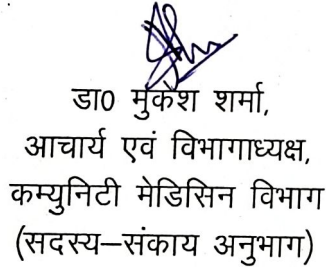 डा0 मुकेश शर्मा,
आचार्य एवं विभागाध्यक्ष,
कम्युनिटी मेडिसिन विभाग
(सदस्य–संकाय अनुभाग)